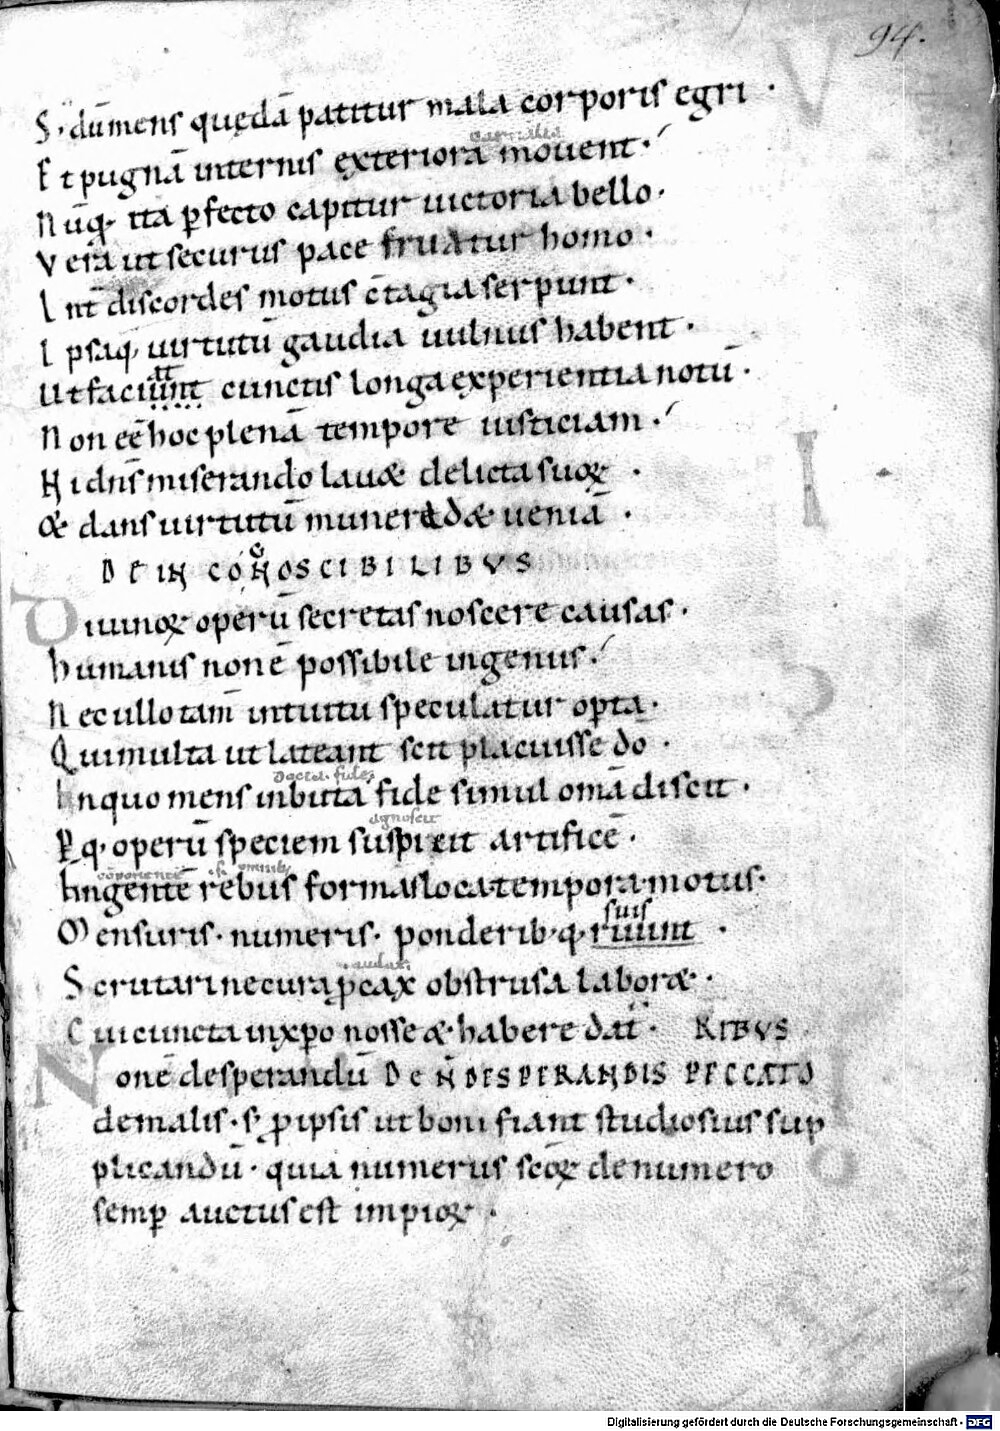 94.
S· dū mens quędā patitur mala corporis egri ·
Et pugnā internis exteriora mouent·
Nūq· ita ꝑfecto capitur uictoria bello·
Vera ut securus pace fruatur homo·
Int̄ discordes motus c̄tagia serpunt·
Ipsaq· uirtutū gaudia uulnus habent·
at
Ut faciunt cunctis longa experientia notū·
Non eē hoc plenā tempore iusticiam·
Ni dn̄s miserando lauæ delicta suoꝝ ·
& dans uirtutū munera dæ ueniā ·
g
DE INCONOSCIBILIBVS
Diuinoꝝ operū secretas noscere causas·
humanis non ē possibile ingeniis·
Nec ullo tam̄ intuitu speculatur oꝑta·
Qui multa ut lateant scit placuisse do ·
docta· fides
In quo mens inbuta fide simul omā discit ·
agnoscit
Ꝑq· operū speciem suspicit artificē·
·s· omnib;
Ingentē rebus formas loca tempora motus·
suis
Mensuris· numeris· ponderib·q· ruunt ·
audax
Scrutari nec cura ꝓcax obstrusa laboræ·
Cui cuncta in xp̄o nosse & habere dat̄· RIBVS
Non ē desperandū DE N̄ DESPERANDIS PECCATO
de malis· s; ꝓ ipsis ut boni fiant studiosius sup
plicandū· quia numerus sc̄oꝝ de numero
semꝑ auctus est impioꝝ·
Digitalisierung gefördert durch die Deutsche Forschungsgemeinschaft - DFG